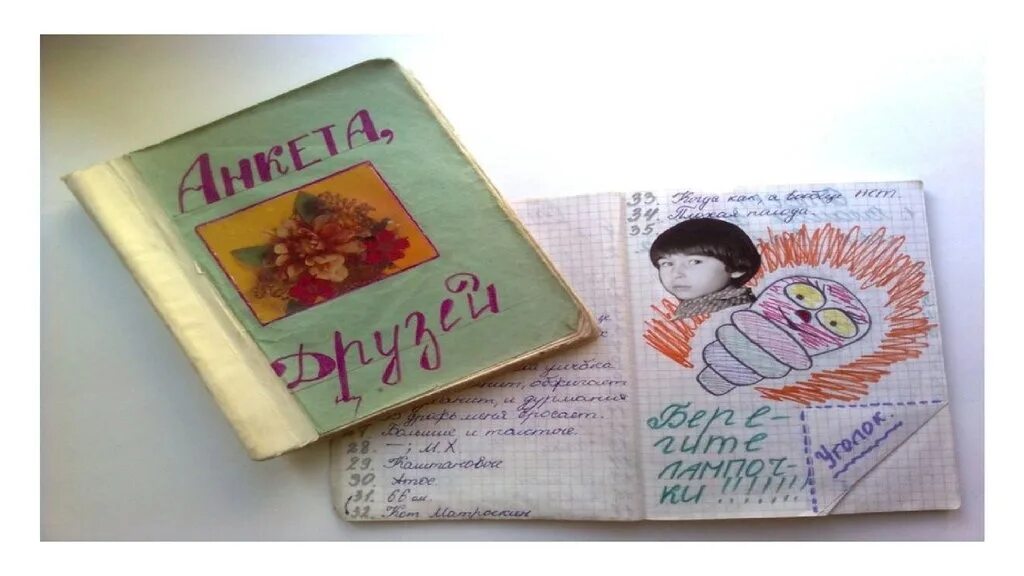 АНКЕТА,
ДРУЗЕЙ
улыбка
обжигает
и дурманит
бросает.
27. Большие и толстые.
28. —; М.Х.
29. Каштановое
30. Атос.
31. 66 см.
32. Кот Матроскин
33. Когда как, а вообще нет.
34. Плохая погода.
35.
БЕРЕ-
ГИТЕ
ЛАМПОЧ-
КИ !!!!!!!
Уголок.